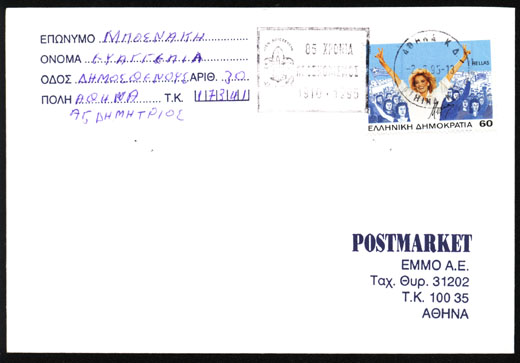 ΕΠΩΝΥΜΟ ΜΠΟΕΝΑΚΗ
ΟΝΟΜΑ ΕΥΑΓΓΕΛΙΑ
ΟΔΟΣ ΔΗΜΟΣΘΕΝΟΥΣ ΑΡΙΘ. 30
ΠΟΛΗ ΑΘΗΝΑ Τ.Κ.
ΑΓ ΔΗΜΗΤΡΙΟΣ
ΧΡΟΝΙΑ
1910 1995
ΑΘΗΝΑ Κ.Δ.
HELLAS
ΕΛΛΗΝΙΚΗ ΔΗΜΟΚΡΑΤΙΑ 60
POSTMARKET
ΕΜΜΟ Α.Ε.
Ταχ. Θυρ. 31202
Τ.Κ. 100 35
ΑΘΗΝΑ